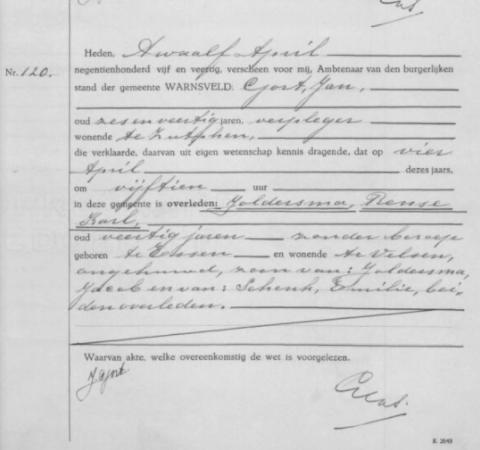 Heden, twaalf April
Nr. 120. negentienhonderd vijf en veertig, verscheen voor mij, Ambtenaar van den burgerlijken
stand der gemeente WARNSVELD: Gort, Jan,
oud zes en veertig jaren, verpleger
wonende te Zutphen,
die verklaarde, daarvan uit eigen wetenschap kennis dragende, dat op vier
April dezes jaars,
om vijftien uur
in deze gemeente is overleden: Joldersma, Rense
Karl,
oud veertig jaren zonder beroep
geboren te Essen en wonende te Velsen,
ongehuwd, zoon van: Joldersma,
Jacob en van: Schenk, Emilie, bei-
den overleden.
Waarvan akte, welke overeenkomstig de wet is voorgelezen.
J Gort